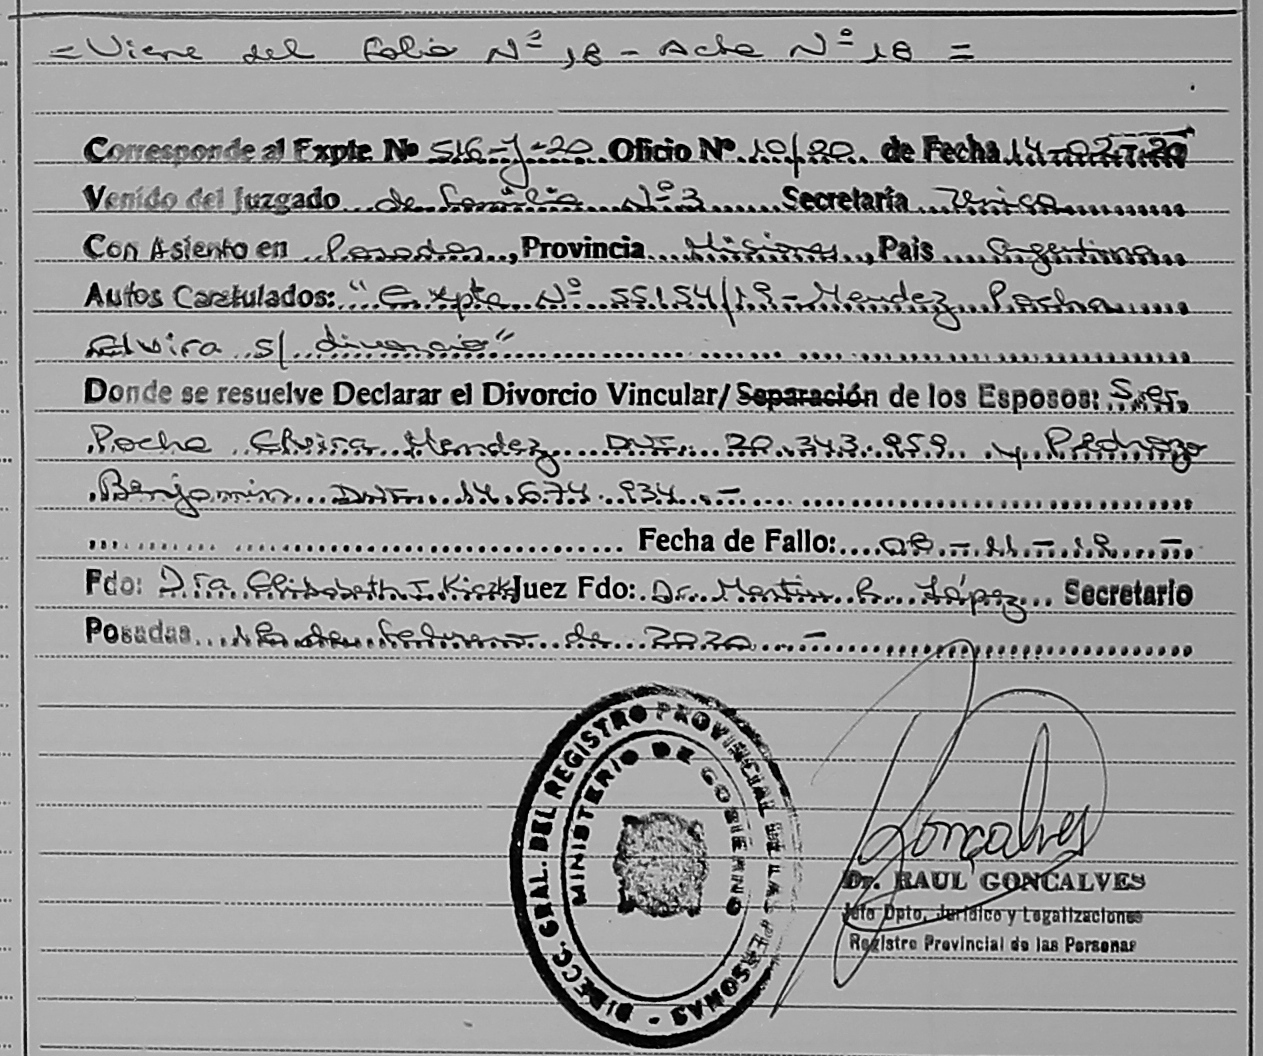 = Viene del folio Nº 18 - Acta Nº 18 =
Corresponde al Expte Nº 516-J-20 Oficio Nº 10/20 de Fecha 14-02-20
Venido del Juzgado de Familia Nº 3 Secretaría Unica
Con Asiento en Posadas, Provincia Misiones, País Argentina
Autos Caratulados: "Expte Nº 55154/19 - Mendez Pocha
Elvira s/ divorcio"
Donde se resuelve Declarar el Divorcio Vincular/Separación de los Esposos: Sres.
Pocha Elvira Mendez DNI 20.343.959 y Pedrozo
Benjamin DNI 14.674.934.-
Fecha de Fallo: 08-11-19.-
Fdo: Dra. Elizabeth I. Kiczk Juez Fdo: Dr. Martin R. López Secretario
Posadas 18 de Febrero de 2020.-
DIRECC. GRAL. DEL REGISTRO PROVINCIAL DE LAS PERSONAS -
MINISTERIO DE GOBIERNO
Goncalves
Dr. RAUL GONCALVES
Jefe Dpto. Jurídico y Legalizaciones
Registro Provincial de las Personas